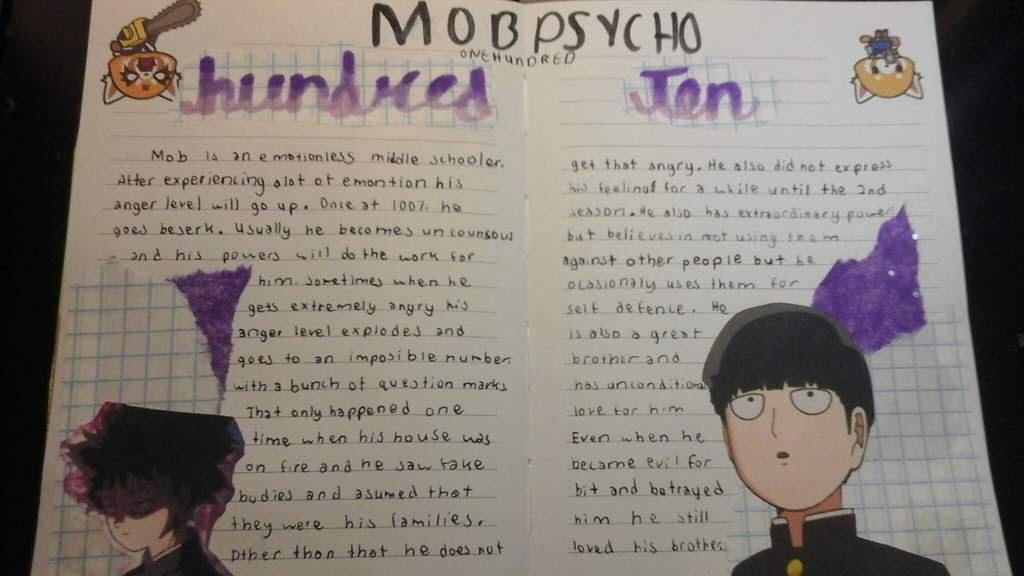 MOB PSYCHO
ONE HUNDRED
hundred
Ten
Mob is an emotionless middle schooler.
After experiencing alot of emontion his
anger level will go up. Once at 100% he
goes beserk. Usually he becomes uncounsous
and his powers will do the work for
him. sometimes when he
gets extremely angry his
anger level explodes and
goes to an imposible number.
with a bunch of question marks
That only happened one
time when his house was
on fire and he saw fake
bodies and asumed that
they were his families.
Other than that he does not
get that angry. He also did not express
his feelings for a while until the 2nd
season. He also has extraordinary power
but believes in not using them
against other people but he
ocasionaly uses them for
self defence. He
is also a great
brother and
has unconditional
love for him
Even when he
became evil for
bit and betrayed
him he still
loved his brother.